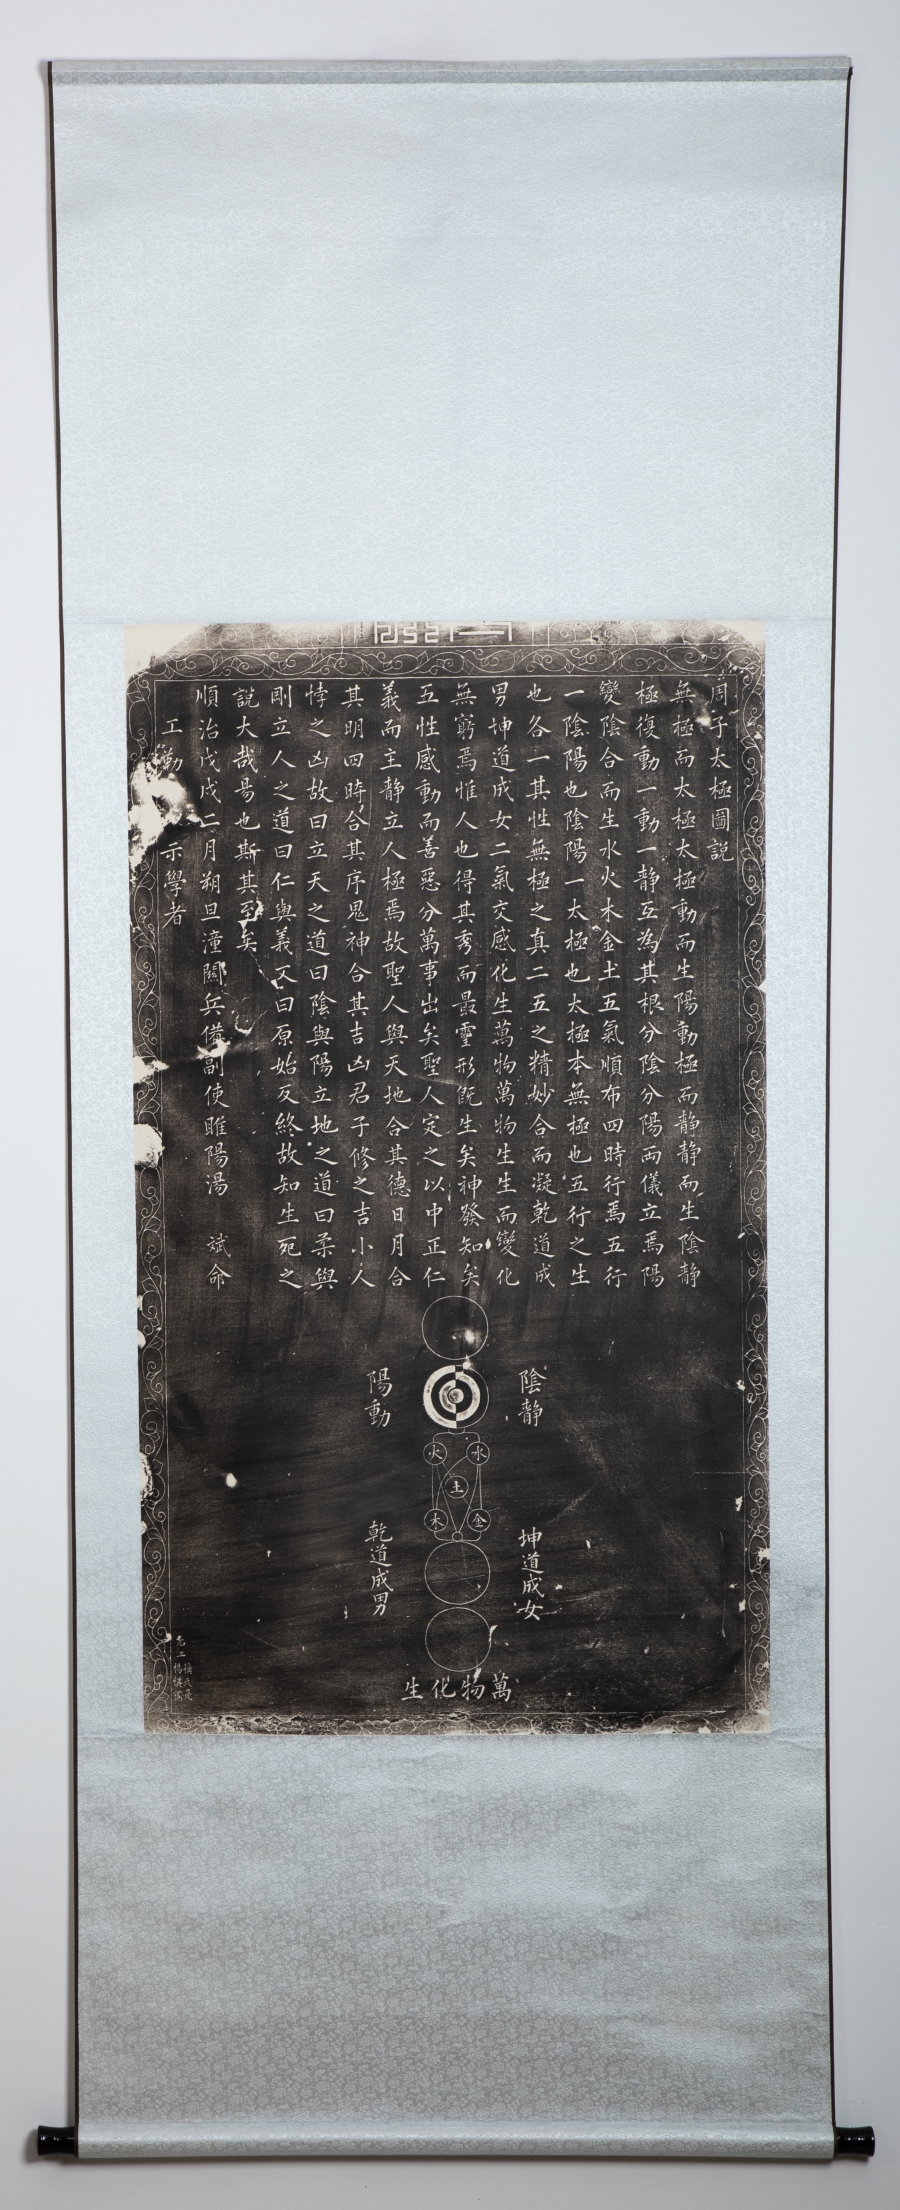 周子太極圖說
無極而太極太極動而生陽動極而静静而生陰静
極復動一動一静互為其根分陰分陽兩儀立焉陽
變陰合而生水火木金土五氣順布四時行焉五行
一陰陽也陰陽一太極也太極本無極也五行之生
也各一其性無極之真二五之精妙合而凝乾道成
男坤道成女二氣交感化生萬物萬物生生而變化
無窮焉惟人也得其秀而最靈形既生矣神發知矣
五性感動而善惡分萬事出矣聖人定之以中正仁
義而主静立人極焉故聖人與天地合其德日月合
其明四時合其序鬼神合其吉凶君子修之吉小人
悖之凶故曰立天之道曰陰與陽立地之道曰柔與
剛立人之道曰仁與義又曰原始反終故知生死之
說大哉易也斯其至矣
順治戊戌二月朔旦潼關兵備副使睢陽湯 斌命
工勒 示學者
陰静
陽動
水
火
土
金
木
坤道成女
乾道成男
萬物化生